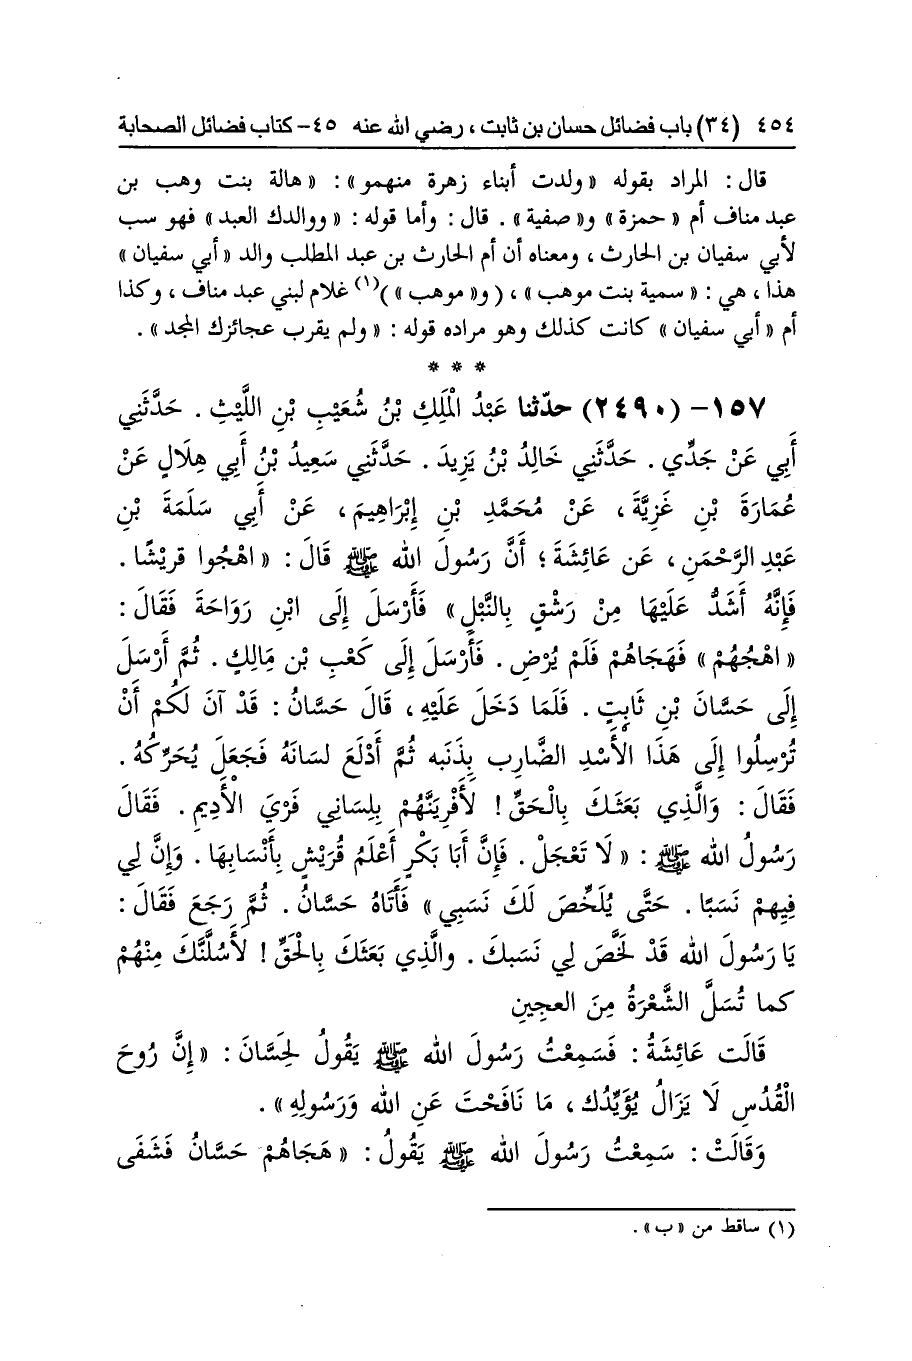 ٤٥٤ (٣٤) باب فضائل حسان بن ثابت ، رضي الله عنه ٤٥- كتاب فضائل الصحابة
قال : المراد بقوله « ولدت أبناء زهرة منهمو » : « هالة بنت وهب بن
عبد مناف أم « حمزة » و« صفية » . قال : وأما قوله : « ووالدك العبد » فهو سب
لأبي سفيان بن الحارث ، ومعناه أن أم الحارث بن عبد المطلب والد « أبي سفيان »
هذا ، هي : « سمية بنت موهب » ، ( و« موهب » )(١) غلام لبني عبد مناف ، وكذا
أم « أبي سفيان » كانت كذلك وهو مراده قوله : « ولم يقرب عجائزك المجد » .
* * *
١٥٧- (٢٤٩٠) حدّثنا عَبْدُ الْمَلِكِ بْنُ شُعَيْبِ بْنِ اللَّيْثِ . حَدَّثَنِي
أَبِي عَنْ جَدِّي . حَدَّثَنِي خَالِدُ بْنُ يَزِيدَ . حَدَّثَنِي سَعِيدُ بْنُ أَبِي هِلَالٍ عَنْ
عُمَارَةَ بْنِ غَزِيَّةَ ، عَنْ مُحَمَّدِ بْنِ إِبْرَاهِيمَ ، عَنْ أَبِي سَلَمَةَ بْنِ
عَبْدِ الرَّحْمَنِ ، عَن عَائِشَةَ ؛ أَنَّ رَسُولَ الله ﷺ قَالَ : « اهْجُوا قريْشًا .
فَإِنَّهُ أَشَدُّ عَلَيْهَا مِنْ رَشْقٍ بِالنَّبْلِ » فَأَرْسَلَ إِلَى ابْنِ رَوَاحَةَ فَقَالَ :
« اهْجُهُمْ » فَهَجَاهُمْ فَلَمْ يُرْضِ . فَأَرْسَلَ إِلَى كَعْبِ بْن مَالِكٍ . ثُمَّ أَرْسَلَ
إِلَى حَسَّانَ بْنِ ثَابِتٍ . فَلَمَا دَخَلَ عَلَيْهِ ، قَالَ حَسَّانُ : قَدْ آنَ لَكُمْ أَنْ
تُرْسِلُوا إِلَى هَذَا الْأَسْدِ الضَّارِب بِذَنَبه ثُمَّ أَدْلَعَ لسَانَهُ فَجَعَلَ يُحَرِّكُهُ .
فَقَالَ : وَالَّذِي بَعَثَكَ بِالْحَقِّ ! لَأَفْرِيَنَّهُمْ بِلِسَانِي فَرْيَ الْأَدِيمِ . فَقَالَ
رَسُولُ الله ﷺ : « لَا تَعْجَلْ . فَإِنَّ أَبَا بَكْرٍ أَعْلَمُ قُرَيْشٍ بِأَنْسَابِهَا . وَإِنَّ لِي
فِيهِمْ نَسَبًا . حَتَّى يُلَخِّصَ لَكَ نَسَبِي » فَأَتَاهُ حَسَّانُ . ثُمَّ رَجَعَ فَقَالَ :
يَا رَسُولَ الله قَدْ لَخَّصَ لِي نَسَبكَ . والَّذِي بَعَثَكَ بِالْحَقِّ ! لَأَسُلَّنَّكَ مِنْهُمْ
كما تُسَلَّ الشَّعْرَةُ مِنَ العجِينِ
قَالَت عَائِشَةُ : فَسَمِعْتُ رَسُولَ الله ﷺ يَقُولُ لِحَسَّانَ : « إِنَّ رُوحَ
الْقُدُسِ لَا يَزَالُ يُؤَيِّدُك ، مَا نَافَحْتَ عَنِ الله وَرَسُولِهِ » .
وَقَالَتْ : سَمِعْتُ رَسُولَ الله ﷺ يَقُولُ : « هَجَاهُمْ حَسَّانُ فَشَفَى
(١) ساقط من « ب » .